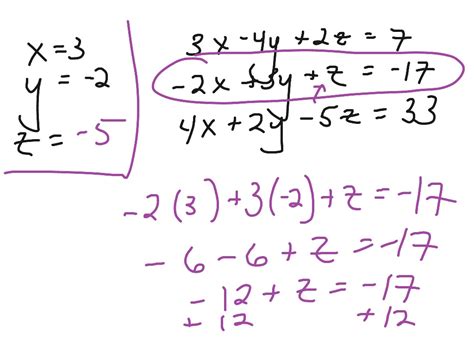 x = 3
y = -2
z = -5
3x - 4y + 2z = 7
-2x + 3y + z = -17
4x + 2y - 5z = 33
-2(3) + 3(-2) + z = -17
-6 - 6 + z = -17
-12 + z = -17
+12 +12